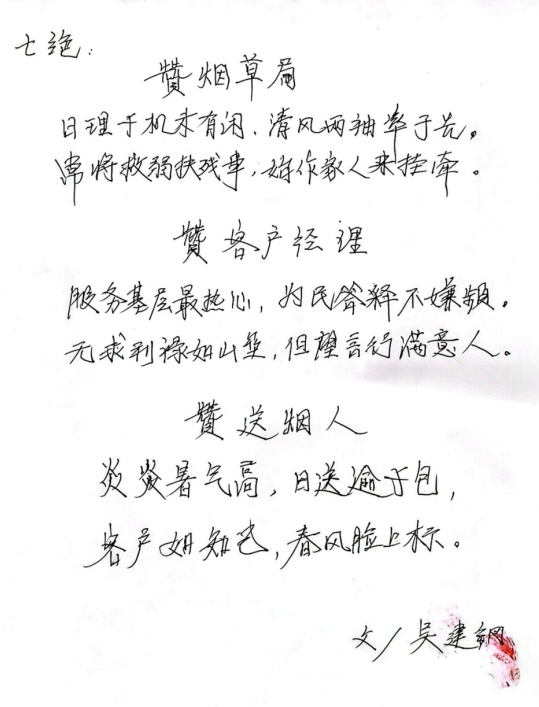 七绝:
赞烟草局
日理千机未有闲、清风两袖率于先。
常将救弱扶残事,始作家人来挂牵。
赞客户经理
服务基层最热心,为民答释不嫌频。
无求利禄如山垒,但望言行满意人。
赞送烟人
炎炎暑气高,日送逾千包,
客户如知己,春风脸上标。
文/吴建钢